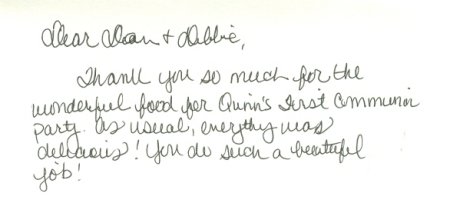 Dear Dean & Debbie,
Thank you so much for the
wonderful food for Quinn's First Communion
party. As usual, everything was
delicious! You do such a beautiful
job!